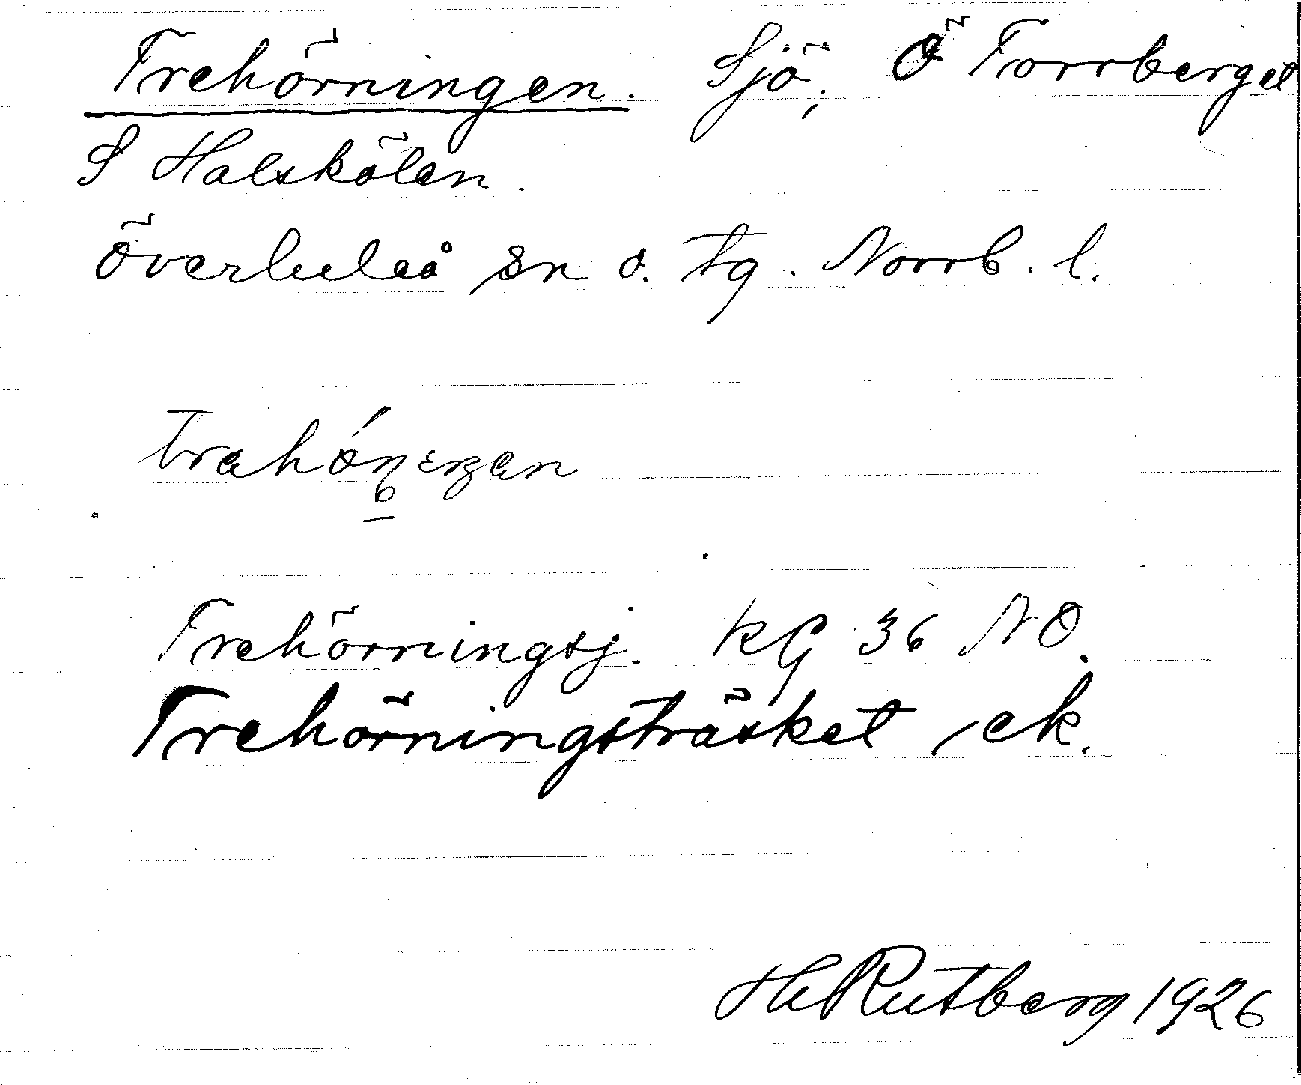 Trehörningen. Sjö, Ö Torrberget
S Halskölen.
Överluleå sn o. tg. Norrb. l.
Trehörningsj. KG 36 NO.
Trehörningsträsket, ek.
HRutberg 1926